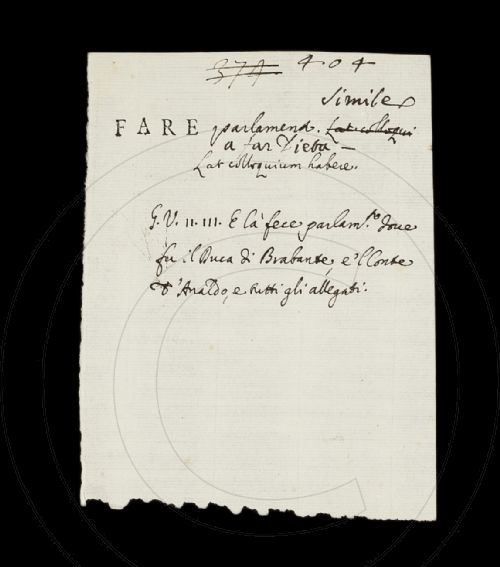 374 404
Simile
FARE parlamento. Lat. colloqui
a far Dieta –
Lat. colloquium habere.
G. V. 11. 111. E là fece parlam.to dove
fu il Duca di Brabante, e 'l Conte
d'Analdo, e tutti gli allegati.